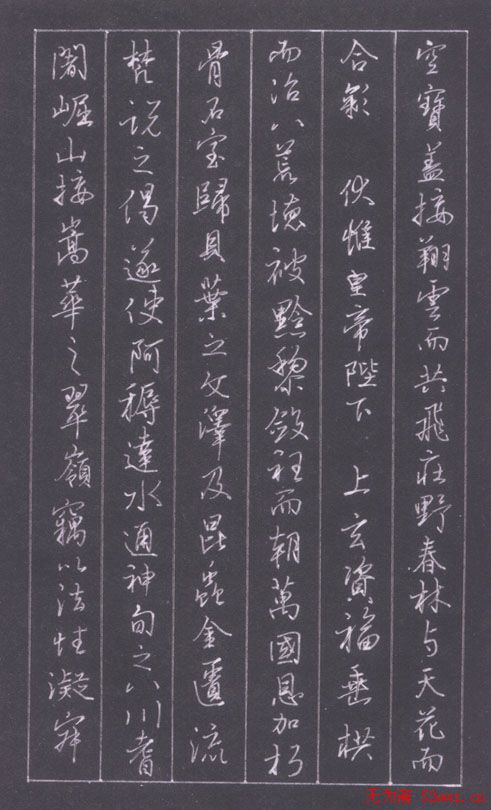 空寶蓋接翔雲而共飛莊野春林与天花而
合彩 伏惟皇帝陛下 上玄資福垂拱
而治八荒德被黔黎斂衽而朝萬國恩加朽
骨石室歸貝葉之文澤及昆蟲金匱流
梵說之偈遂使阿耨達水通神甸之八川耆
闍崛山接嵩華之翠嶺竊以法性凝寂